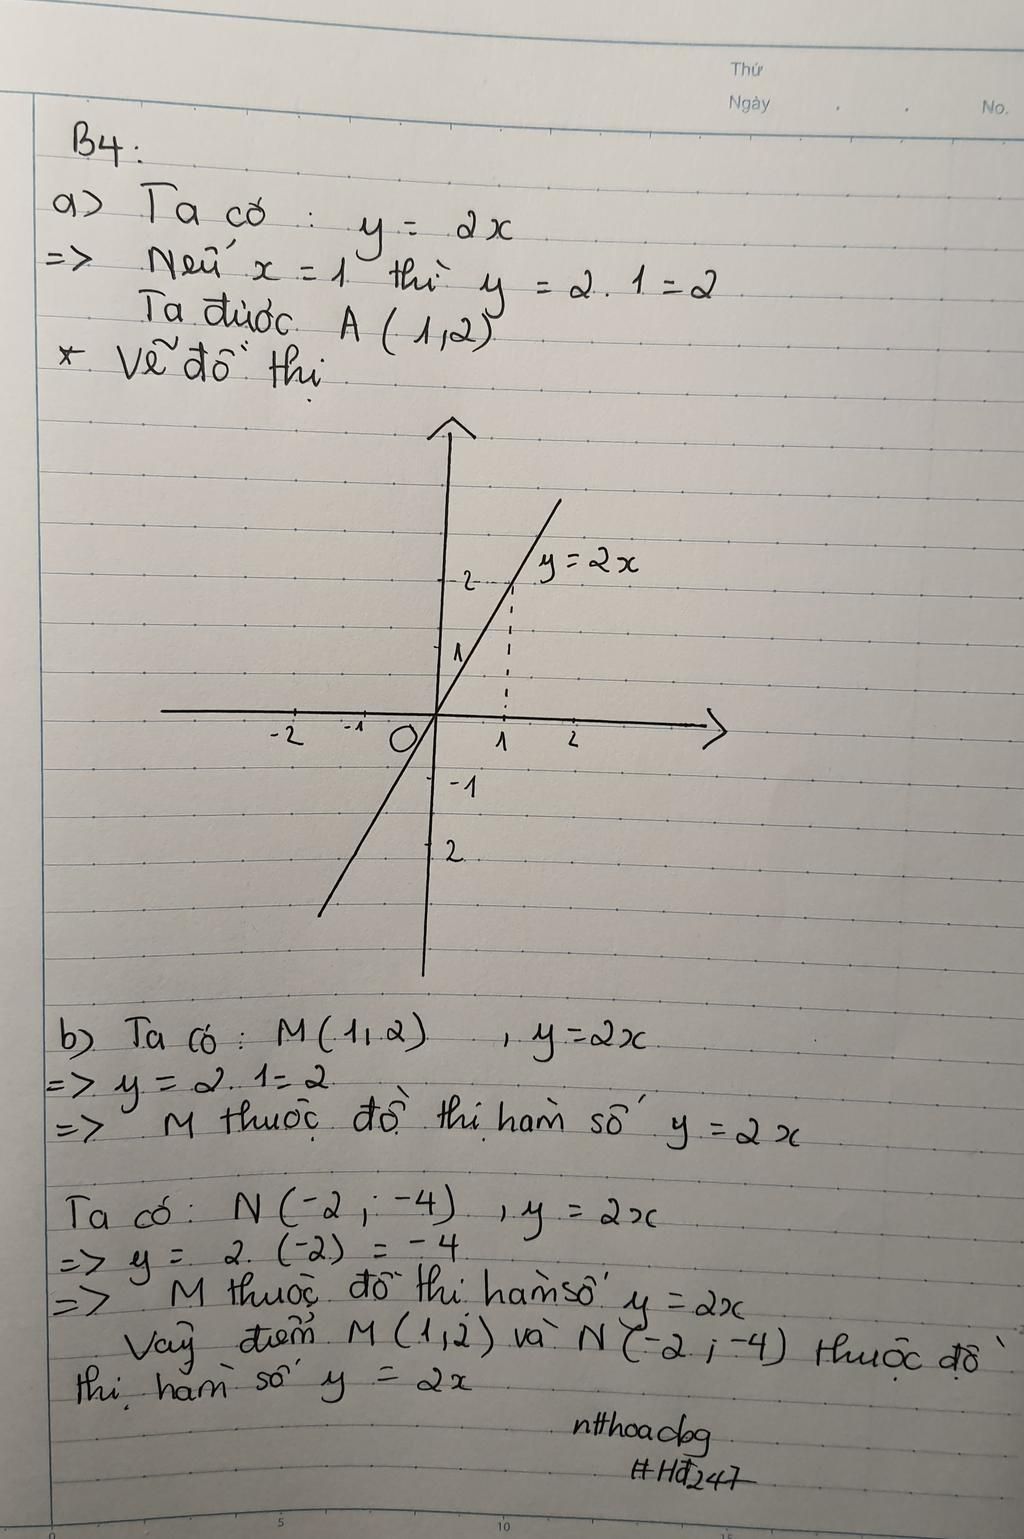 Thứ
Ngày . . No.
B4:
a) Ta có : y = 2x
=> Nếu x = 1 thì y = 2.1 = 2
Ta được A (1,2)
* Vẽ đồ thị
2
y = 2x
1
-2 -1 O 1 2
-1
2
b) Ta có : M (1,2) , y = 2x
=> y = 2.1 = 2
=> M thuộc đồ thị hàm số y = 2x
Ta có: N (-2 ; -4) , y = 2x
=> y = 2. (-2) = -4
=> M thuộc đồ thị hàm số y = 2x
Vậy điểm M (1,2) và N (-2 ; -4) thuộc đồ
thị hàm số y = 2x
n#hoacbg
#Hđ247
5 10 15